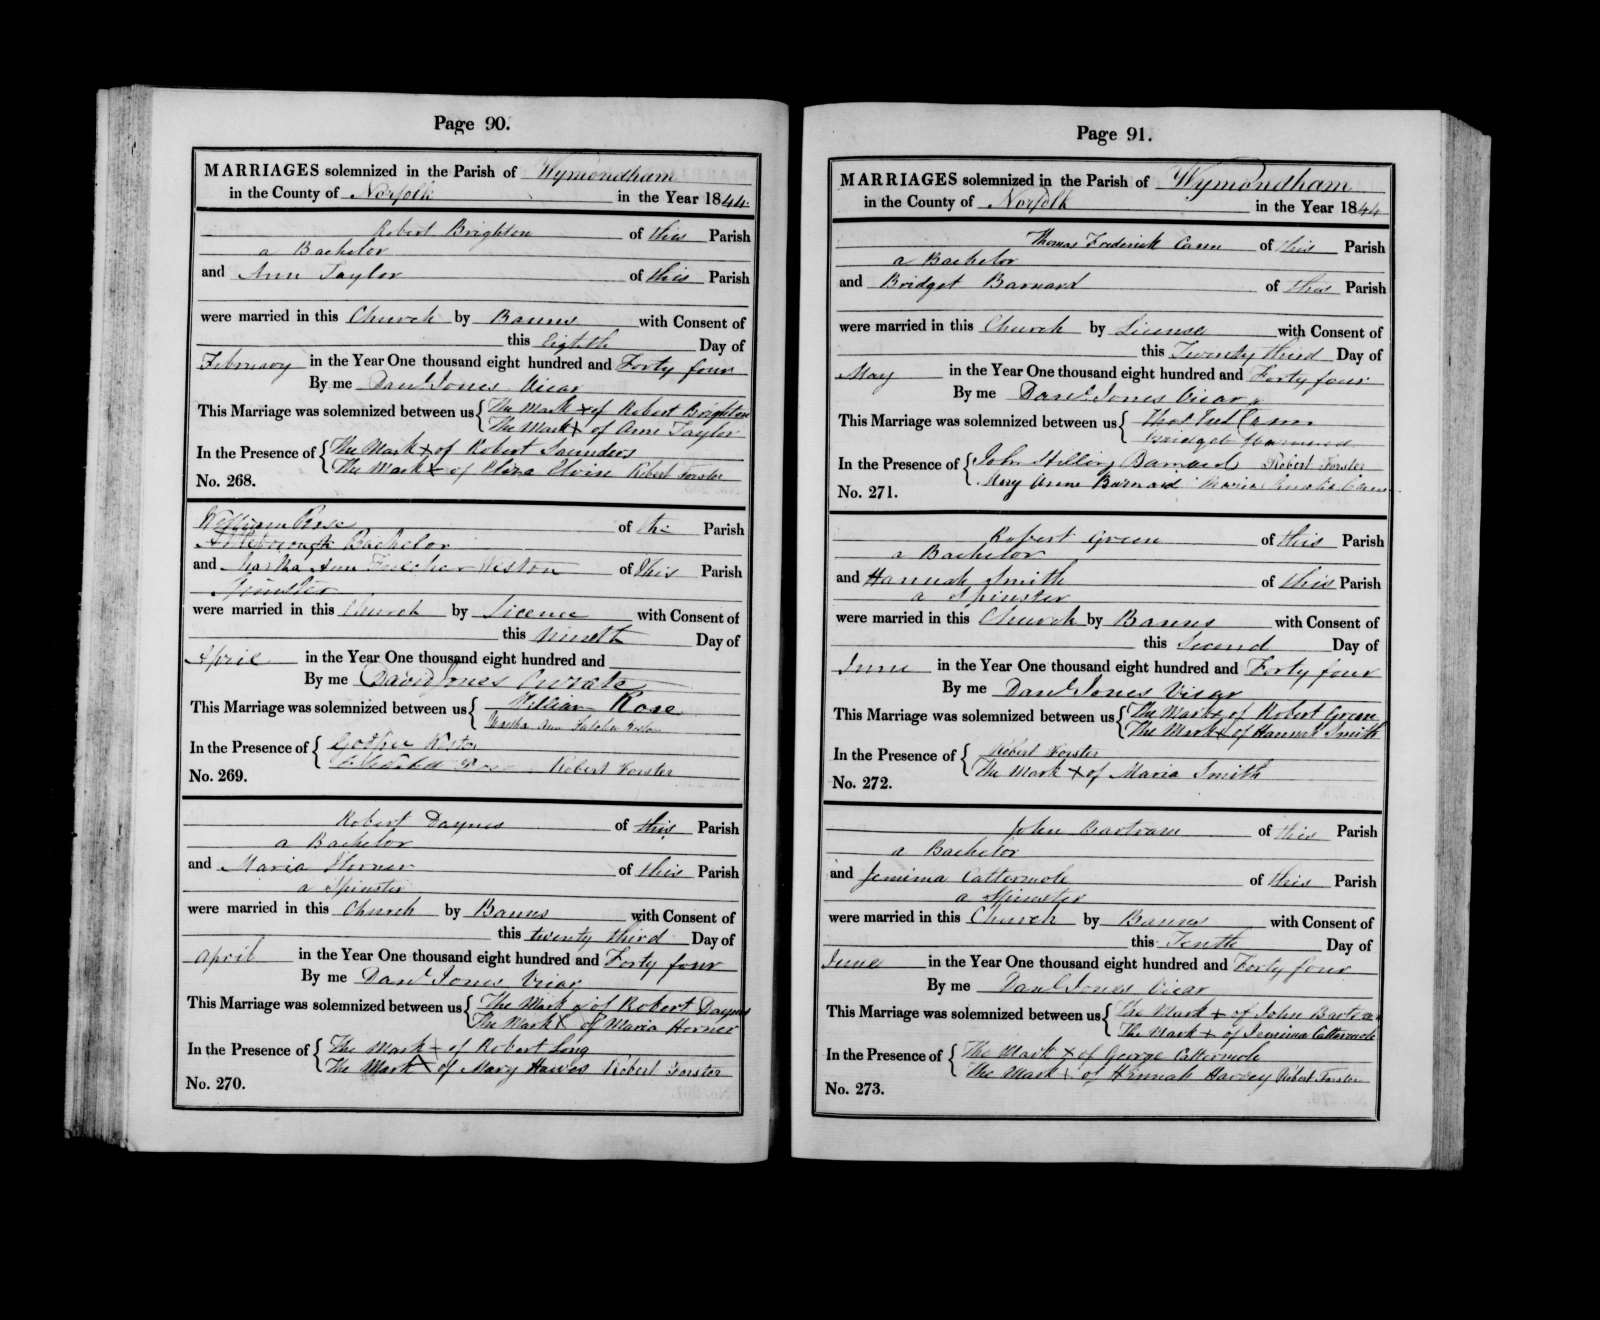 Page 90.
MARRIAGES solemnized in the Parish of Wymondham
in the County of Norfolk in the Year 1844.
Robert Brighton of this Parish
a Bachelor
and Ann Taylor of this Parish
were married in this Church by Banns with Consent of
this Eighth Day of
February in the Year One thousand eight hundred and Forty four
By me Danl Jones Vicar
This Marriage was solemnized between us { The Mark x of Robert Brighton
The Mark x of Ann Taylor
In the Presence of { The Mark x of Robert Saunders
The Mark x of Clara Elvin Robert Forster
No. 268.
William Rose of the Parish
Attleborough Bachelor
and Martha Ann Fulcher Weston of this Parish
Spinster
were married in this Church by Licence with Consent of
this Ninth Day of
April in the Year One thousand eight hundred and
By me David Jones Curate
This Marriage was solemnized between us { William Rose
Martha Ann Fulcher Weston
In the Presence of {
Rose Robert Forster
No. 269.
Robert Daynes of this Parish
a Bachelor
and Maria Horner of this Parish
a Spinster
were married in this Church by Banns with Consent of
this twenty third Day of
April in the Year One thousand eight hundred and Forty four
By me Danl Jones Vicar
This Marriage was solemnized between us { The Mark x of Robert Daynes
The Mark X of Maria Horner
In the Presence of { The Mark + of Robert Long
The Mark X of Mary Hawes Robert Forster
No. 270.
Page 91.
MARRIAGES solemnized in the Parish of Wymondham
in the County of Norfolk in the Year 1844
Thomas Frederick Cann of this Parish
a Bachelor
and Bridget Barnard of this Parish
were married in this Church by License with Consent of
this Twenty third Day of
May in the Year One thousand eight hundred and Forty four
By me Danl Jones Vicar
This Marriage was solemnized between us { Thos Fred Cann
Bridget Barnard
In the Presence of { John Barnard Robert Forster
Mary Anne Barnard Maria Cann
No. 271.
Robert Green of this Parish
a Bachelor
and Hannah Smith of this Parish
a Spinster
were married in this Church by Banns with Consent of
this Second Day of
June in the Year One thousand eight hundred and Forty four
By me Danl Jones Vicar
This Marriage was solemnized between us { The Mark x of Robert Green
The Mark x of Hannah Smith
In the Presence of { Robert Forster
The Mark x of Maria Smith
No. 272.
John Bartram of this Parish
a Bachelor
and Jemima Cattermole of this Parish
a Spinster
were married in this Church by Banns with Consent of
this Tenth Day of
June in the Year One thousand eight hundred and Forty four
By me Danl Jones Vicar
This Marriage was solemnized between us { The Mark + of John Bartram
The Mark + of Jemima Cattermole
In the Presence of { The Mark x of George Cattermole
The Mark x of Hannah Harvey Robert Forster
No. 273.